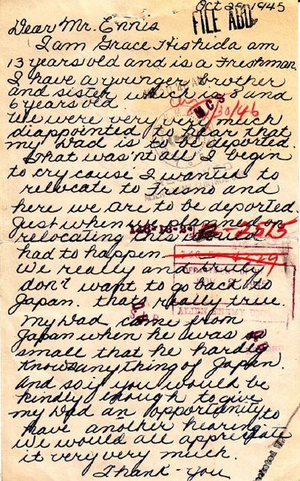 Oct 29, 1945
FILE ABD.
Dear Mr. Ennis
I am Grace Hishida am
13 years old and is a Freshman.
I have a younger brother
and sister which is 8 and
6 years old.
We were very very much
diappointed to hear that
my Dad is to be deported.
That was'nt all I begin
to cry cause I wanted to
relocate to Fresno and
here we are to be deported.
Just when we planned on
relocating this
had to happen.
We really and truly
don't want to go back to
Japan. that's really true.
My Dad came from
Japan when he was so
small that he hardly
knows anything of Japan.
And so if you would be
kindly enough to give
my Dad an opportunity to
have another hearing
we would all appreciate
it very very much.
Thank-you